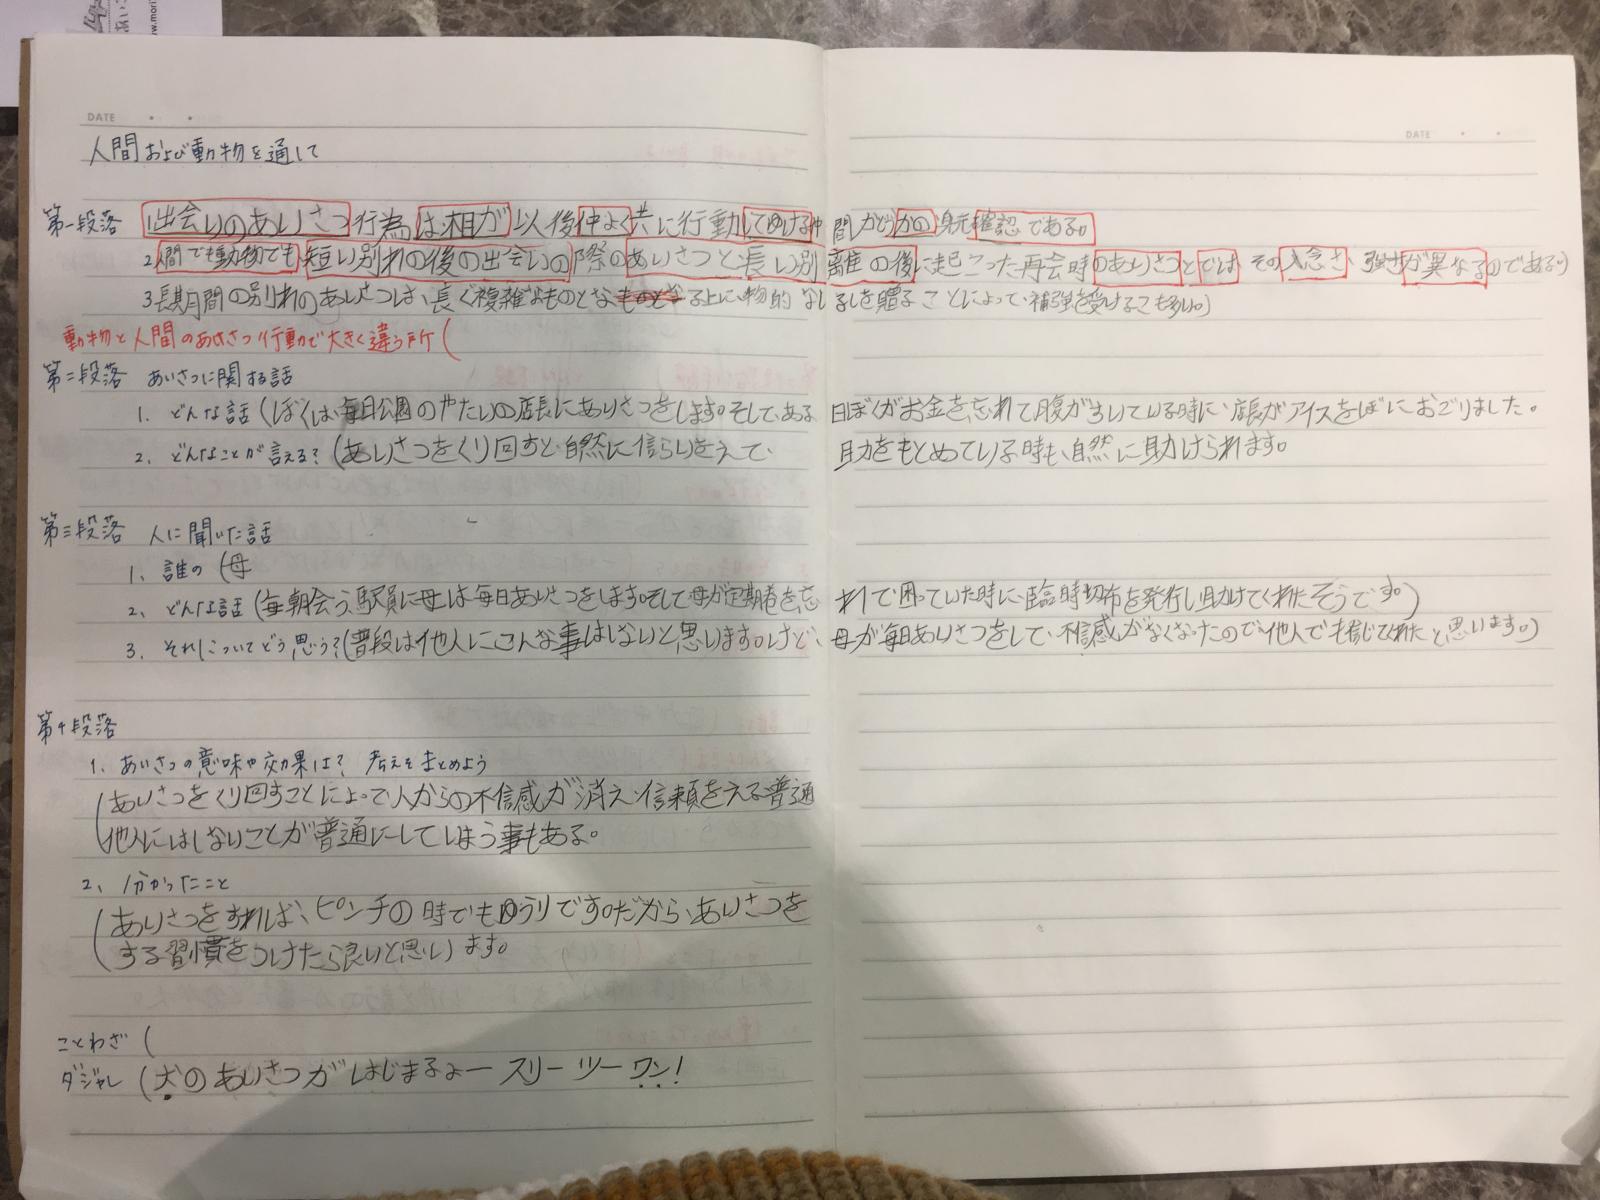 DATE
DATE
人間および動物を通して
第一段落 1出会いのあいさつ行為は、相が以後仲よく共に行動してゆける仲間かどうかの身元確認である。
2人間でも動物でも短い別れの後の出会いの際のあいさつと長い別離の後に起こった再会時のあいさつとではその入念さ、強さが異なるのである)
3長期間の別れのあいさつは、長く複雑なものとなる上に、物的なしるしを贈ることによって、補強を受けることも多い。)
動物と人間のあいさつ行動で大きく違う所(
第二段落 あいさつに関する話
1. どんな話(ぼくは、毎日公園のやたいの店長にあいさつをします。そして、ある日ぼくがお金を忘れて腹がすいている時に、店長がアイスをぼにおごりました。
2. どんなことが言える?(あいさつをくり回すと、自然に信らいをえて、助をもとめている時も、自然に助けられます。
第三段落 人に聞いた話
1. 誰の(母
2. どんな話(毎朝会う、駅員に母は毎日あいさつをします。そして母が定期巻を忘れて困っていた時に、臨時切布を発行し助けてくれたそうです。)
3. それについてどう思う?(普段は他人にこんな事はしないと思います。けど、母が毎日あいさつをして、不信感がなくなったので、他人でも信じてくれたと思います。)
第4段落
1. あいさつの意味や効果は? 考えをまとめよう
(あいさつをくり回すことによって、人からの不信感が消え、信頼をえる普通
他人にはしないことが普通にしてしまう事もある。
2. 分かったこと
(あいさつをすれば、ピンチの時でもゆうりです。だから、あいさつを
する習慣をつけたら良いと思います。
ことわざ(
ダジャレ(犬のあいさつがはじまるよー スリー ツー ワン!